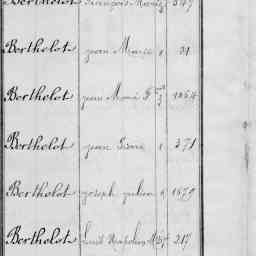 Berthelot François Marie 547
Berthelot jean Marie 1 31
Berthelot jean Marie 1264
Berthelot jean Pierre 1 371
Berthelot joseph julien 6 1679
Berthelot Louis Napoléon M 217